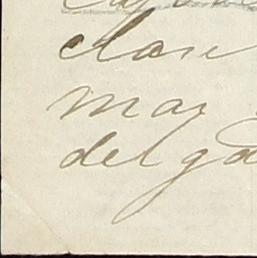 clase
mas
del ga